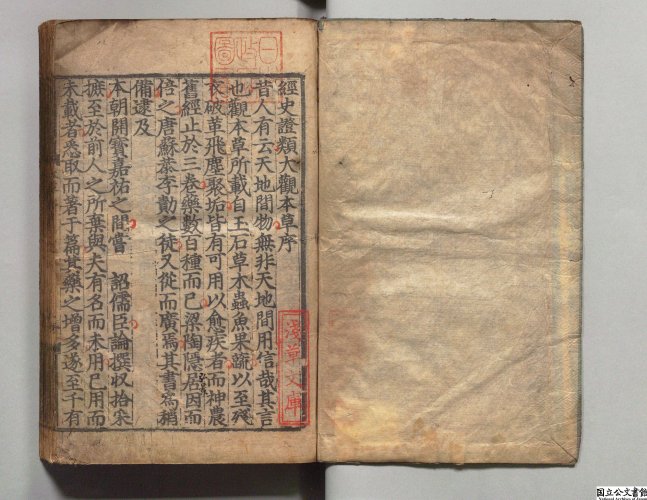 經史證類大觀本草序
昔人有云天地間物無非天地間用信哉其言
也觀本草所載自玉石草木蟲魚果蔬以至殘
衣破革飛塵聚垢皆有可用以愈疾者而神農
舊經止於三卷藥數百種而已梁陶隱居因而
倍之唐蘇恭李勣之徒又從而廣焉其書為稍
備逮及
本朝開寶嘉祐之間嘗 詔儒臣論撰收拾采
摭至於前人之所棄與夫有名而未用已用而
未載者悉取而著于篇其藥之增多遂至千有
淺草文庫
国立公文書館
National Archives of Japan